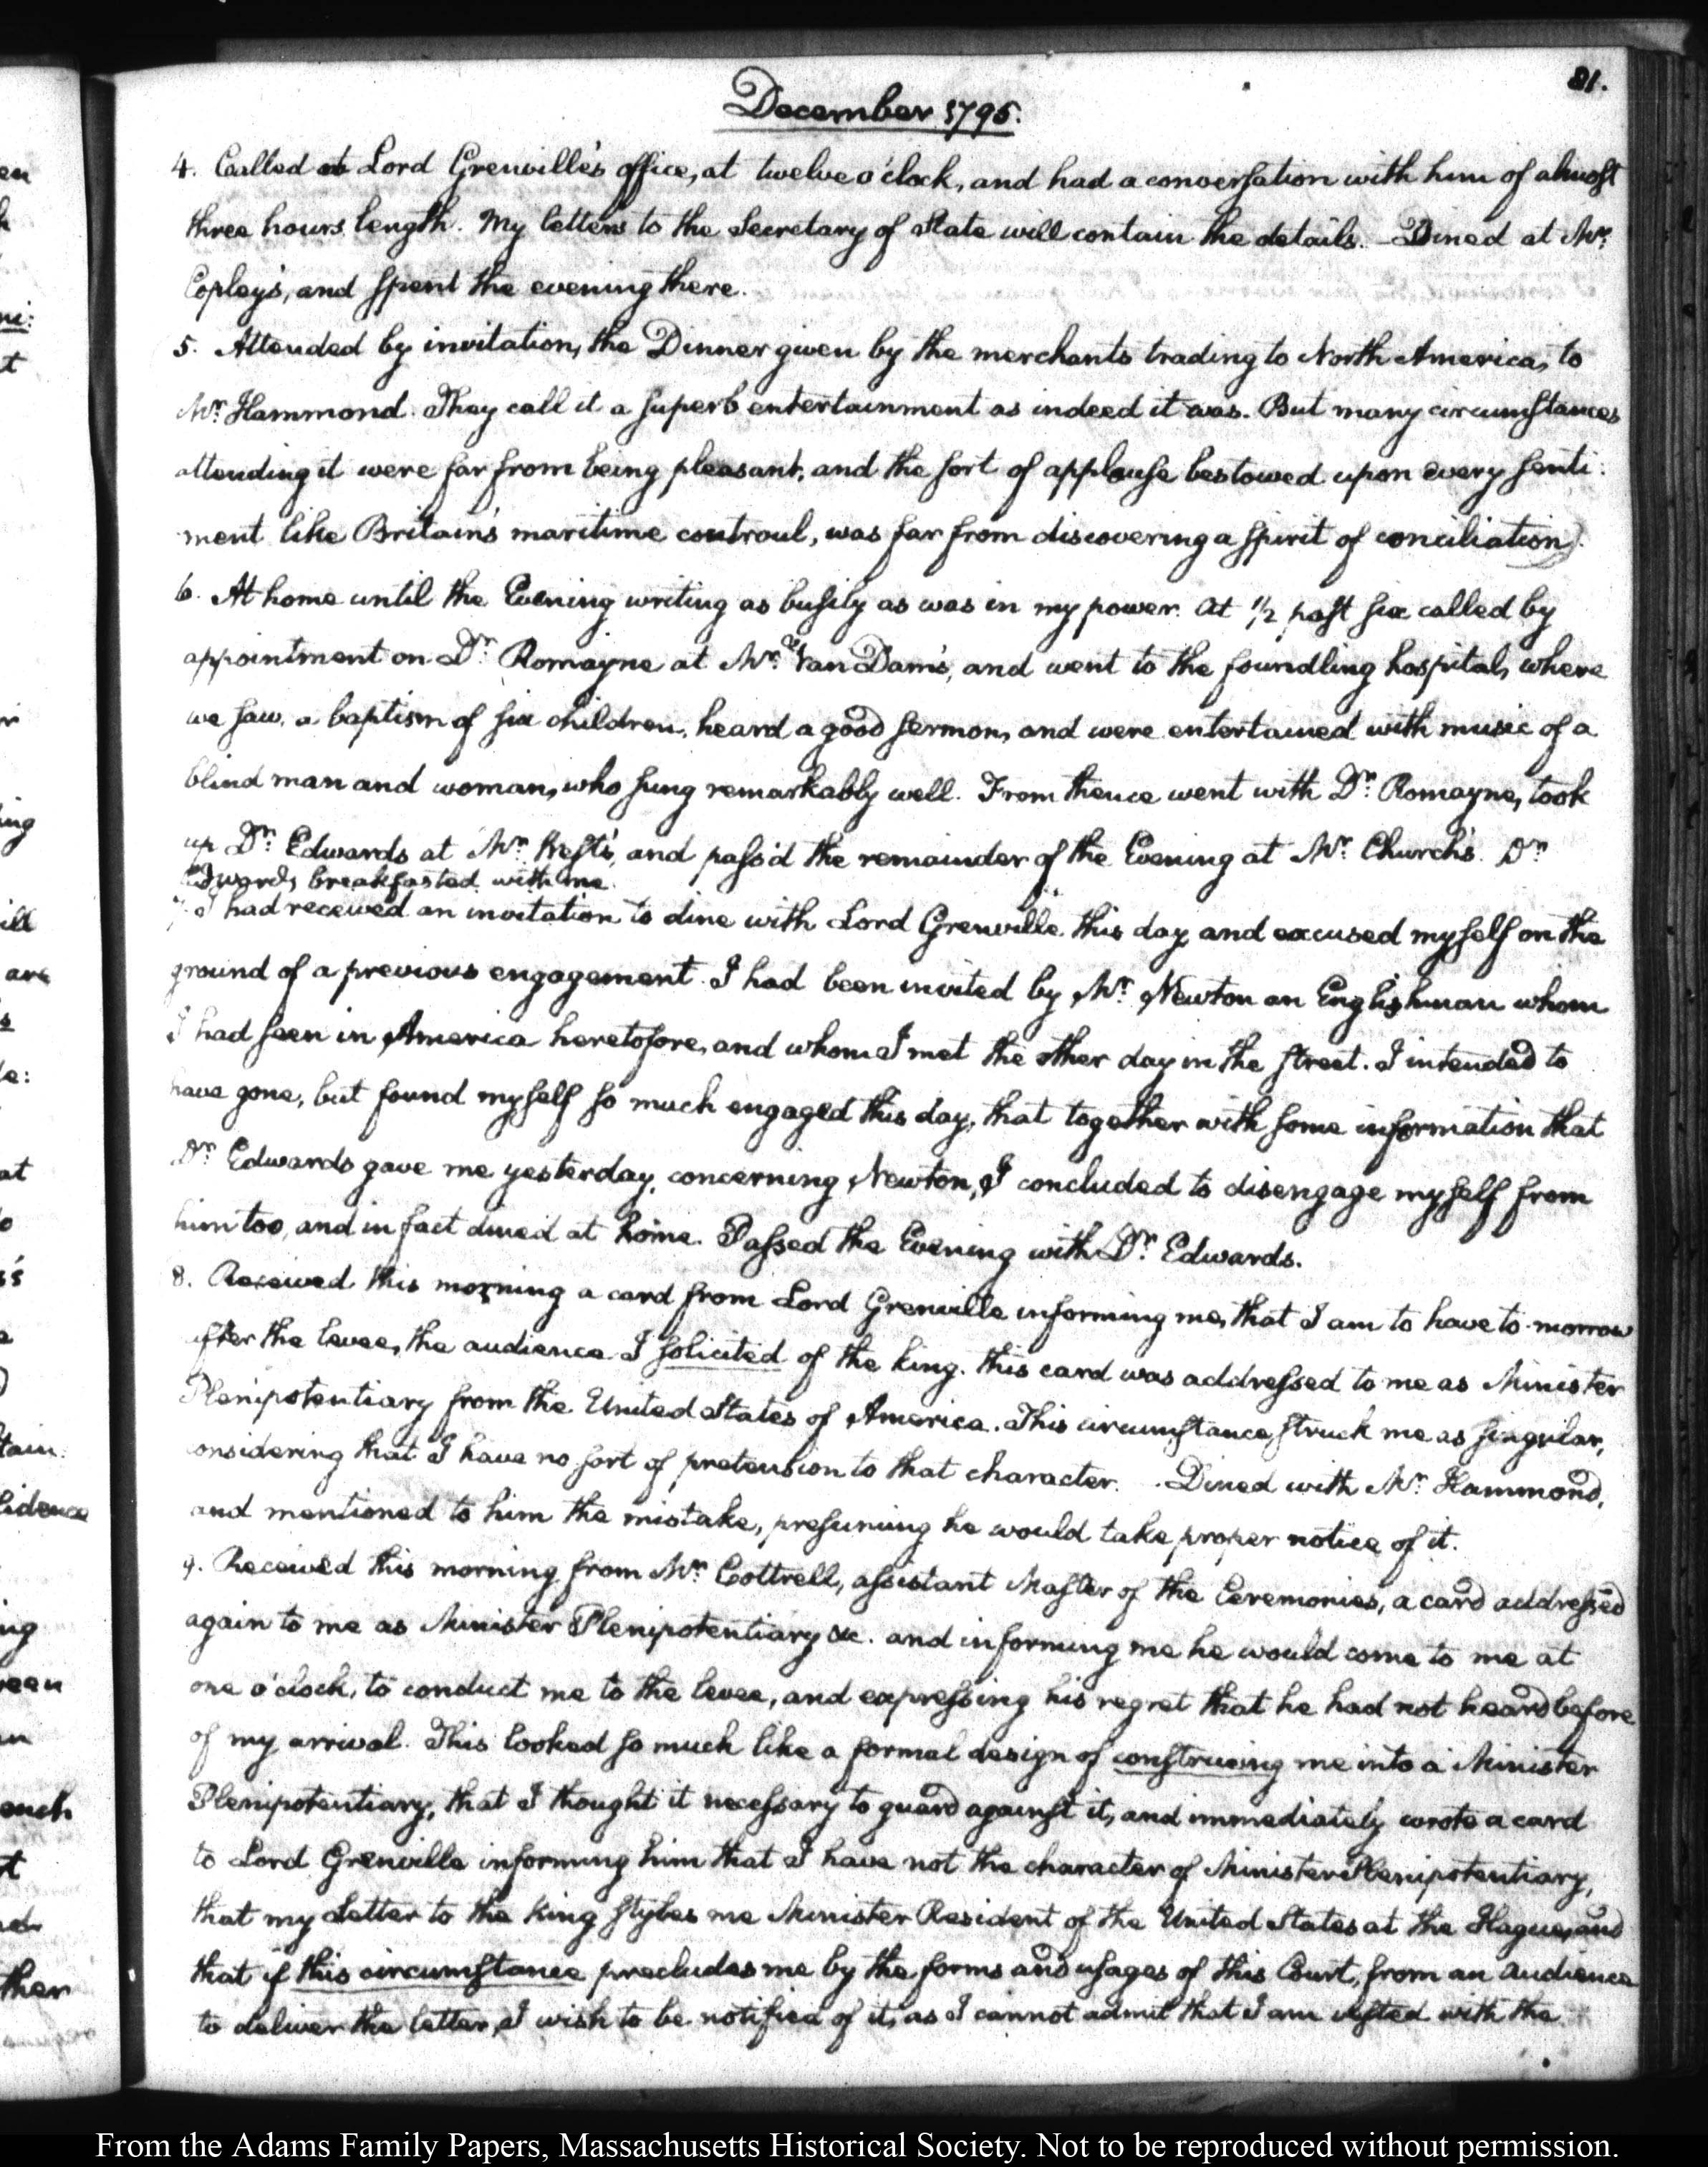 81.
December 1795.
4. Called at Lord Grenville's office, at twelve o'clock, and had a conversation with him of almost
three hours length. My letters to the Secretary of State will contain the details. Dined at Mr.
Copley's, and spent the evening there.
5. Attended by invitation, the Dinner given by the merchants trading to North America, to
Mr. Hammond. They call it a superb entertainment as indeed it was. But many circumstances
attending it were far from being pleasant, and the sort of applause bestowed upon every senti:
ment like Britain's maritime controul, was far from discovering a spirit of conciliation.
6. At home until the Evening writing as busily as was in my power. At 1/2 past six called by
appointment on Dr. Romayne at Mrs. Van Dam's, and went to the foundling hospital, where
we saw a baptism of six children, heard a good sermon, and were entertained with music of a
blind man and woman, who sung remarkably well. From thence went with Dr. Romayne, took
up Dr. Edwards at Mr. and pass'd the remainder of the Evening at Mr. Church's. Dr.
Edwards breakfasted with me.
7. I had received an invitation to dine with Lord Grenville this day and excused myself on the
ground of a previous engagement. I had been invited by Mr. Newton an Englishman whom
I had seen in America heretofore, and whom I met the other day in the street. I intended to
have gone, but found myself so much engaged this day, that together with some information that
Dr. Edwards gave me yesterday, concerning Newton, I concluded to disengage myself from
him too, and in fact dined at home. Passed the Evening with Dr. Edwards.
8. Received this morning a card from Lord Grenville informing me, that I am to have to-morrow
after the levee, the audience I solicited of the king. this card was addressed to me as Minister
Plenipotentiary from the United States of America. This circumstance struck me as singular,
considering that I have no sort of pretension to that character. Dined with Mr. Hammond,
and mentioned to him the mistake, presuming he would take proper notice of it.
9. Received this morning from Mr. Cottrell, assistant Master of the Ceremonies, a card addressed
again to me as Minister Plenipotentiary &c. and informing me he would come to me at
one o'clock, to conduct me to the levee, and expressing his regret that he had not heard before
of my arrival. This looked so much like a formal design of construing me into a Minister
Plenipotentiary, that I thought it necessary to guard against it, and immediately wrote a card
to Lord Grenville informing him that I have not the character of Minister Plenipotentiary,
that my Letter to the king styles me Minister Resident of the United States at the Hague, and
that if this circumstance precludes me by the forms and usages of this Court, from an audience
to deliver the letter, I wish to be notified of it, as I cannot admit that I am vested with the
From the Adams Family Papers, Massachusetts Historical Society. Not to be reproduced without permission.